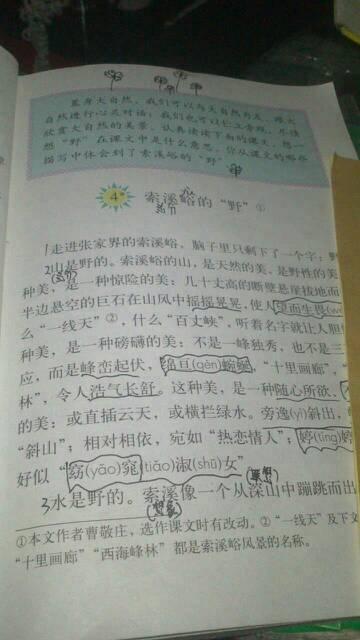 置身大自然，我们可以与大自然为友，跟大
自然进行心灵对话；我们也可以仁立旁观，尽情
欣赏大自然的美景。认真读读下面的课文，想一
想“野”在课文中是什么意思，你从课文的哪些
描写中体会到了索溪峪的“野”
4* 索溪峪的“野”①
1走进张家界的索溪峪，脑子里只剩下了一个字：野
2山是野的。索溪峪的山，是天然的美，是野性的美
种美，是一种惊险的美：几十丈高的断壁悬崖拔地而
半边悬空的巨石在山风中摇摇晃晃，使人望而生畏
么“一线天”②，什么“百丈峡”，听着名字就让人胆
种美，是一种磅礴的美：不是一峰独秀，也不是三
应，而是峰峦起伏，绵亘(gèn)蜿蜒，“十里画廊”，“
林”，令人浩气长舒。这种美，是一种随心所欲、
的美：或直插云天，或横拦绿水。旁逸(yì)斜出，
“斜山”；相对相依，宛如“热恋情人”；婷(tíng)婷
好似“窈(yǎo)窕(tiǎo)淑(shū)女”
3水是野的。索溪像一个从深山中蹦跳而出
①本文作者曹敬庄，选作课文时有改动。②“一线天”及下文
“十里画廊”“西海峰林”都是索溪峪风景的名称。